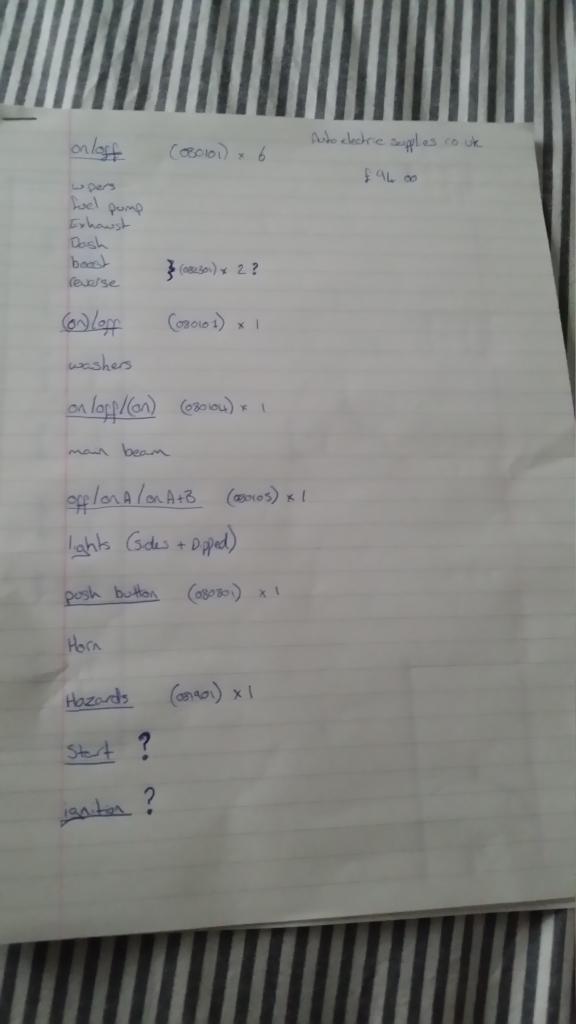 on/off (080101) × 6 Autoelectric supplies co uk
£94 00
wipers
fuel pump
Exhaust
Dash
boost
reverse } (082301) × 2 ?
(on)/off (080101) × 1
washers
on/off/(on) (080104) × 1
main beam
off/onA/onA+B (080105) × 1
lights (sides + Dipped)
push button (080801) × 1
Horn
Hazards (081901) × 1
Start ?
ignition ?